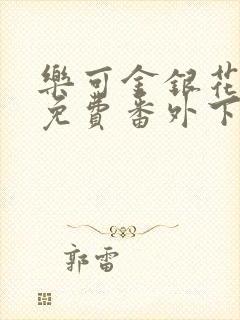 樂可金銀花
免費番外下
郭雷